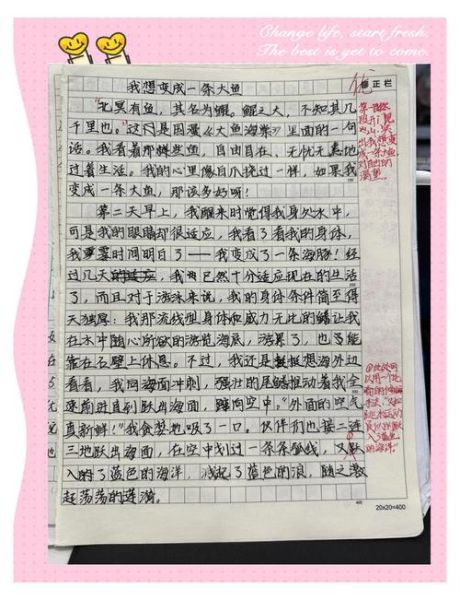 Change life, start fresh.
The best is yet to come.
我想变成一条大鱼
优
修正栏
"北冥有鱼，其名为鲲。鲲之大，不知其几
千里也。"这句是国漫《大鱼海棠》里面的一句
话。我看着那些鱼，自由自在、无忧无虑地
过着生活。我的心里像自爪挠过一样，如果我
变成一条大鱼，那该多好呀！
第二天早上，我醒来时觉得我身处水中，
可是我的眼睛却很适应，我看了看我的身体，
我霎时间明白了——我变成了一条海豚！经
过几天，我已然十分适应现在的生活
了，而且对于游泳来说，我的身体条件简至得
天独厚：我那流线型身体和威力无比的鳍让我
在水中随心所欲的游览海底，游累了，也只能
靠在石壁上休息。不过，我还是挺想海外边
看看，我向海面冲刺，强壮的尾鳍推动着我全
速前进直到跃出海面，蹿向空中。"外面的空气
真新鲜！"我贪婪地吸了一口。伙伴们也接二连
三地跃出海面，在空中划过一条条弧线，又跃
入的了蓝色的海洋，溅起了蓝色的浪，随之激
起荡荡的涟漪。
20x20=400